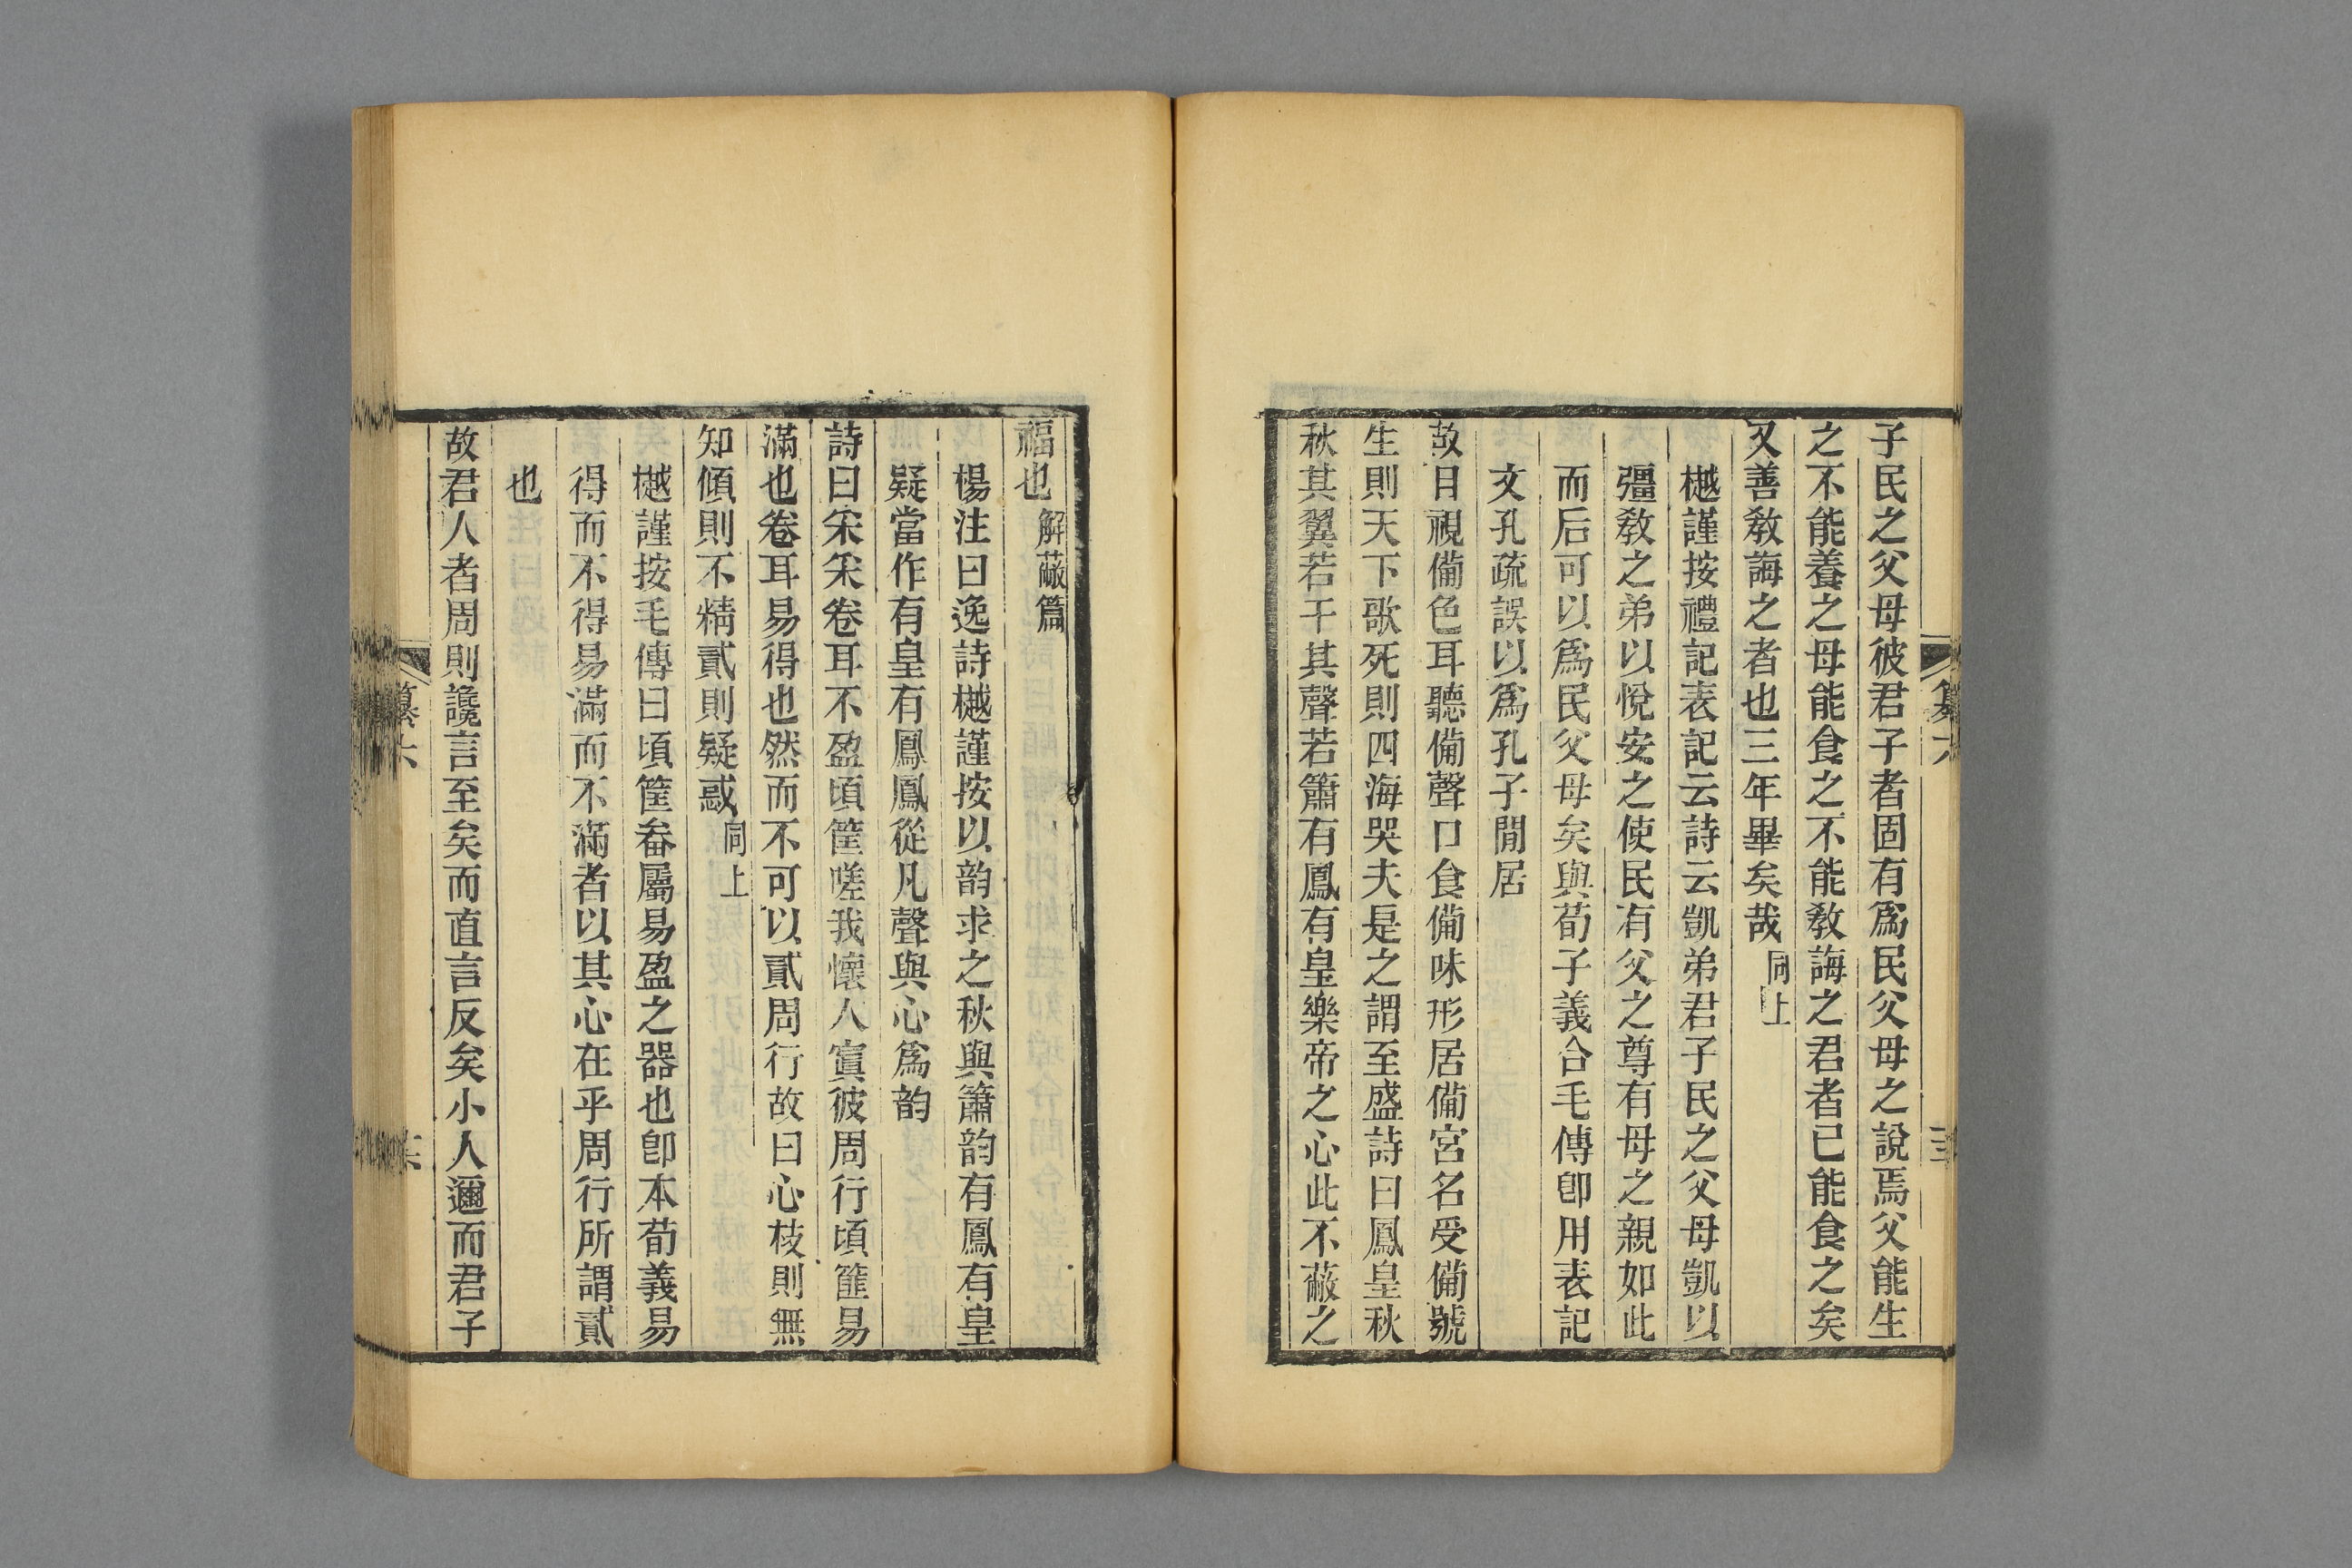 子民之父母彼君子者固有爲民父母之說焉父能生
之不能養之母能食之不能教誨之君者已能食之矣
又善教誨之者也三年畢矣哉同上
樾謹按禮記表記云詩云凱弟君子民之父母凱以
彊教之弟以悅安之使民有父之尊有母之親如此
而后可以爲民父母矣與荀子義合毛傳卽用表記
文孔疏誤以爲孔子閒居
故目視備色耳聽備聲口食備味形居備宮名受備號
生則天下歌死則四海哭夫是之謂至盛詩曰鳳皇秋
秋其翼若干其聲若簫有鳳有皇樂帝之心此不蔽之
福也解蔽篇
楊注曰逸詩樾謹按以韵求之秋與簫韵有鳳有皇
疑當作有皇有鳳鳳從凡聲與心爲韵
詩曰采采卷耳不盈頃筐嗟我懷人寘彼周行頃筐易
滿也卷耳易得也然而不可以貳周行故曰心枝則無
知傾則不精貳則疑惑同上
樾謹按毛傳曰頃筐畚屬易盈之器也卽本荀義易
得而不得易滿而不滿者以其心在乎周行所謂貳
也
故君人者周則讒言至矣而直言反矣小人邇而君子
纂六